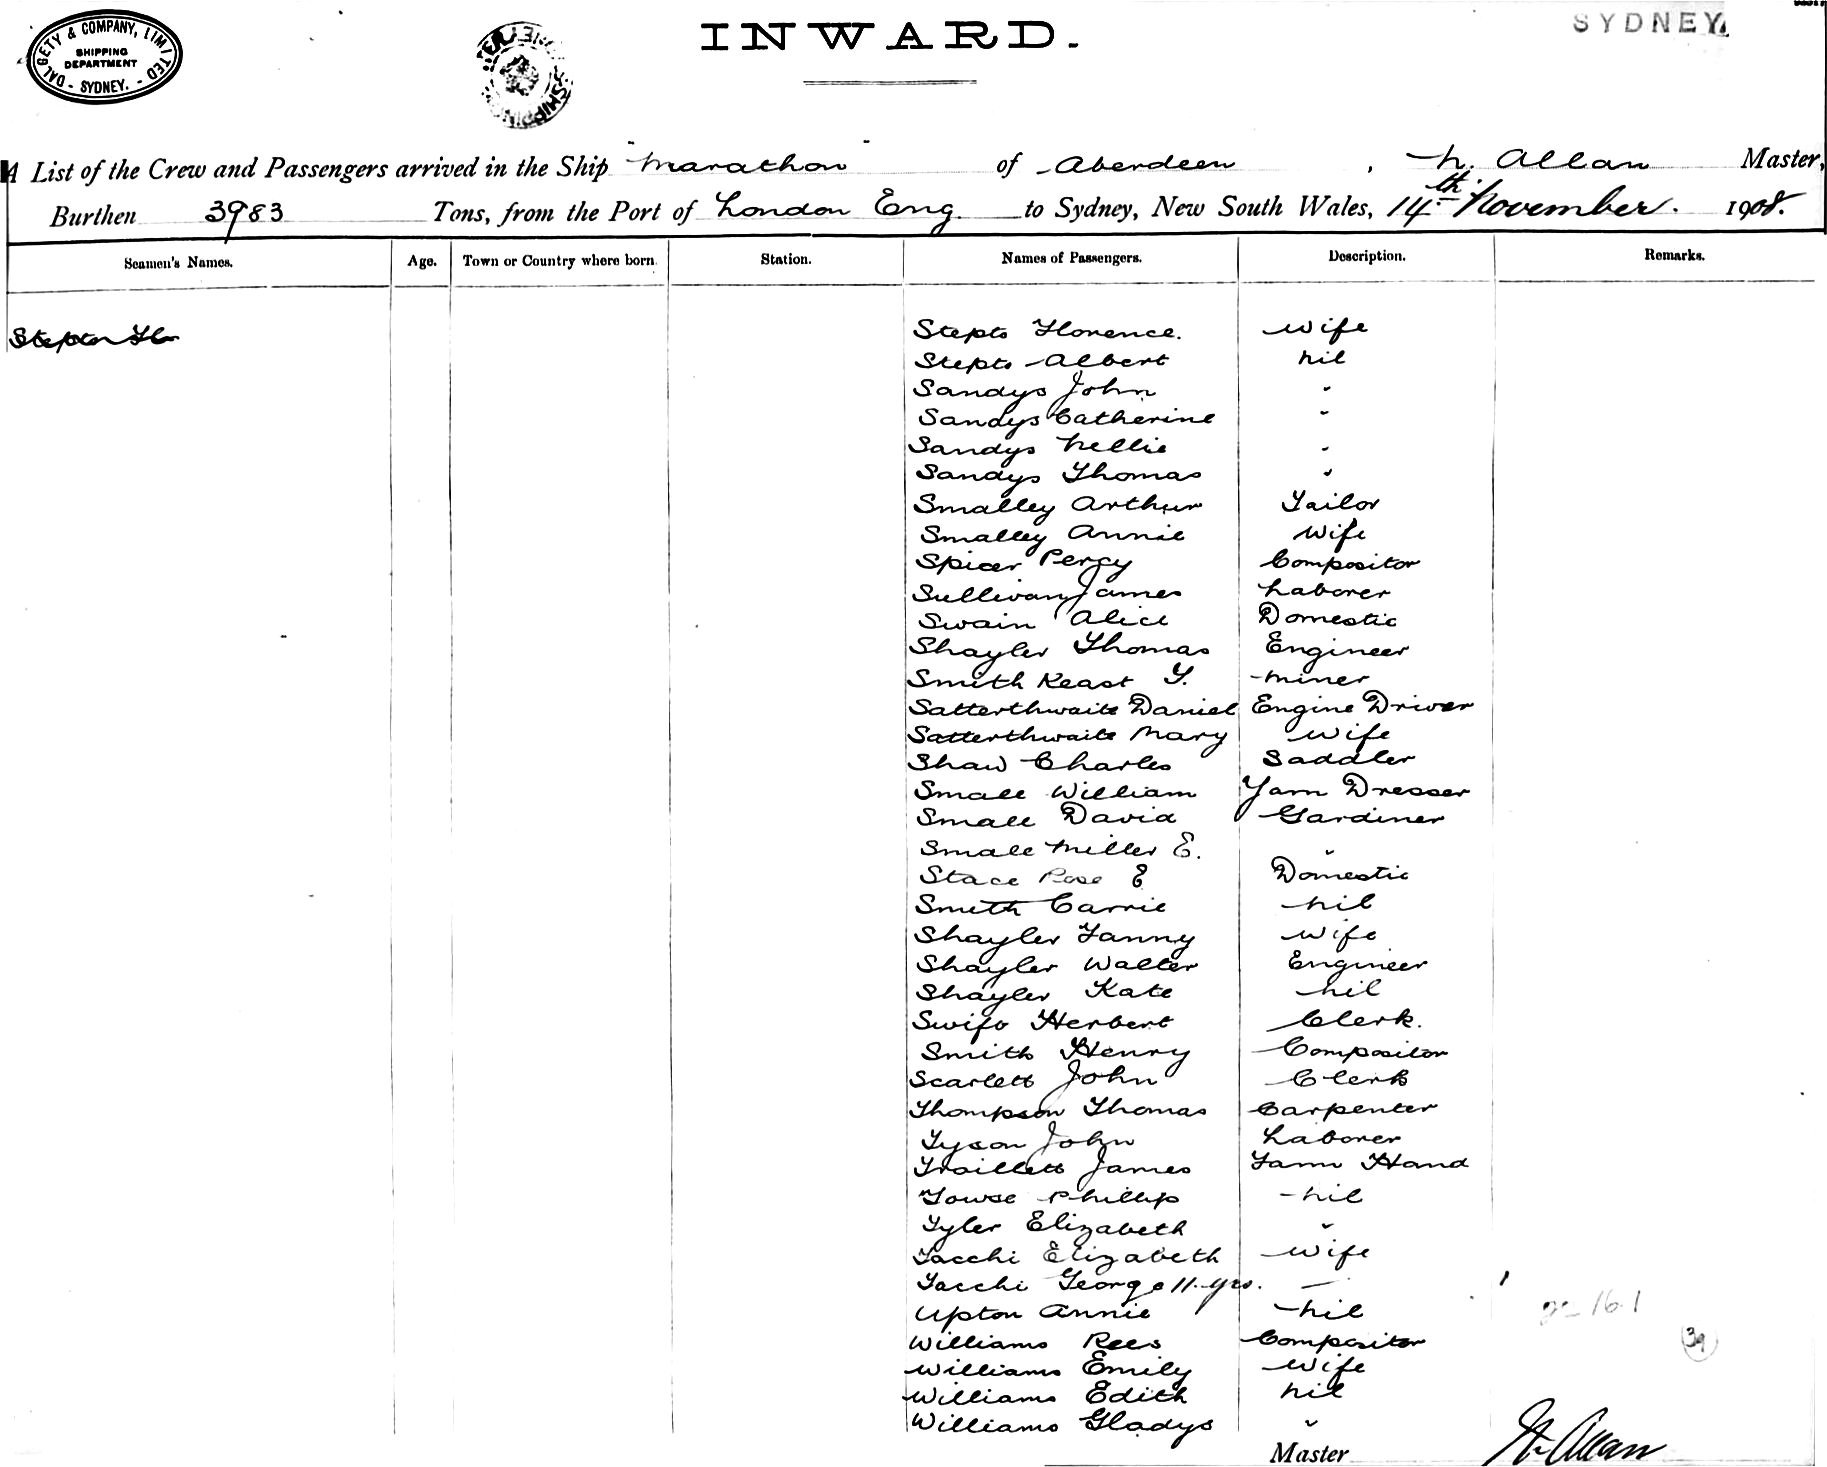 DALGETY & COMPANY, LIMITED
SHIPPING
DEPARTMENT
- SYDNEY. -
INWARD.
SYDNEY.
A List of the Crew and Passengers arrived in the Ship "Marathon" of Aberdeen, N. Allan Master,
Burthen 3983 Tons, from the Port of London Eng. to Sydney, New South Wales, 14th November. 1908.
Seamen's Names. Age. Town or Country where born. Station. Names of Passengers. Description. Remarks.
Stepto Flo Stepto Florence. Wife
Stepto Albert Nil
Sandys John "
Sandys Catherine "
Sandys Nellie "
Sandys Thomas "
Smalley Arthur Tailor
Smalley Annie Wife
Spicer Percy Compositor
Sullivan James Laborer
Swain Alice Domestic
Shayler Thomas Engineer
Smith Keast T. Miner
Satterthwaite Daniel Engine Driver
Satterthwaite Mary Wife
Shaw Charles Saddler
Small William Yarn Dresser
Small David Gardiner
Small Miller E. "
Stace Rose E Domestic
Smith Carrie Nil
Shayler Fanny Wife
Shayler Walter Engineer
Shayler Kate Nil
Swift Herbert Clerk.
Smith Henry Compositor
Scarlett John Clerk
Thompson Thomas Carpenter
Tyson John Laborer
Traillett James Farm Hand
Towse Phillip Nil
Tyler Elizabeth "
Tacchi Elizabeth Wife
Tacchi George 11. yrs. —
Upton Annie Nil
Williams Rees Compositor
Williams Emily Wife
39
Williams Edith Nil
Williams Gladys "
Master N. Allan